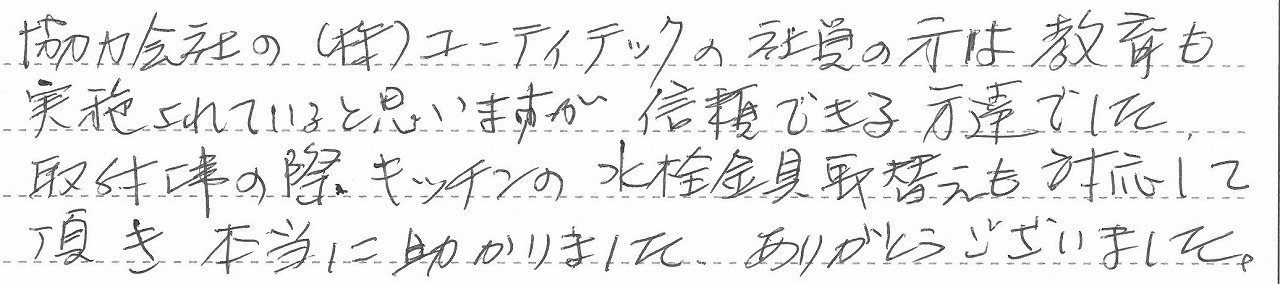 協力会社の（株）ユーティテックの社員の方は教育も
実施されていると思いますが信頼できる方達でした。
取付工事の際、キッチンの水栓金具取替えも対応して
頂き本当に助かりました。ありがとうございました。